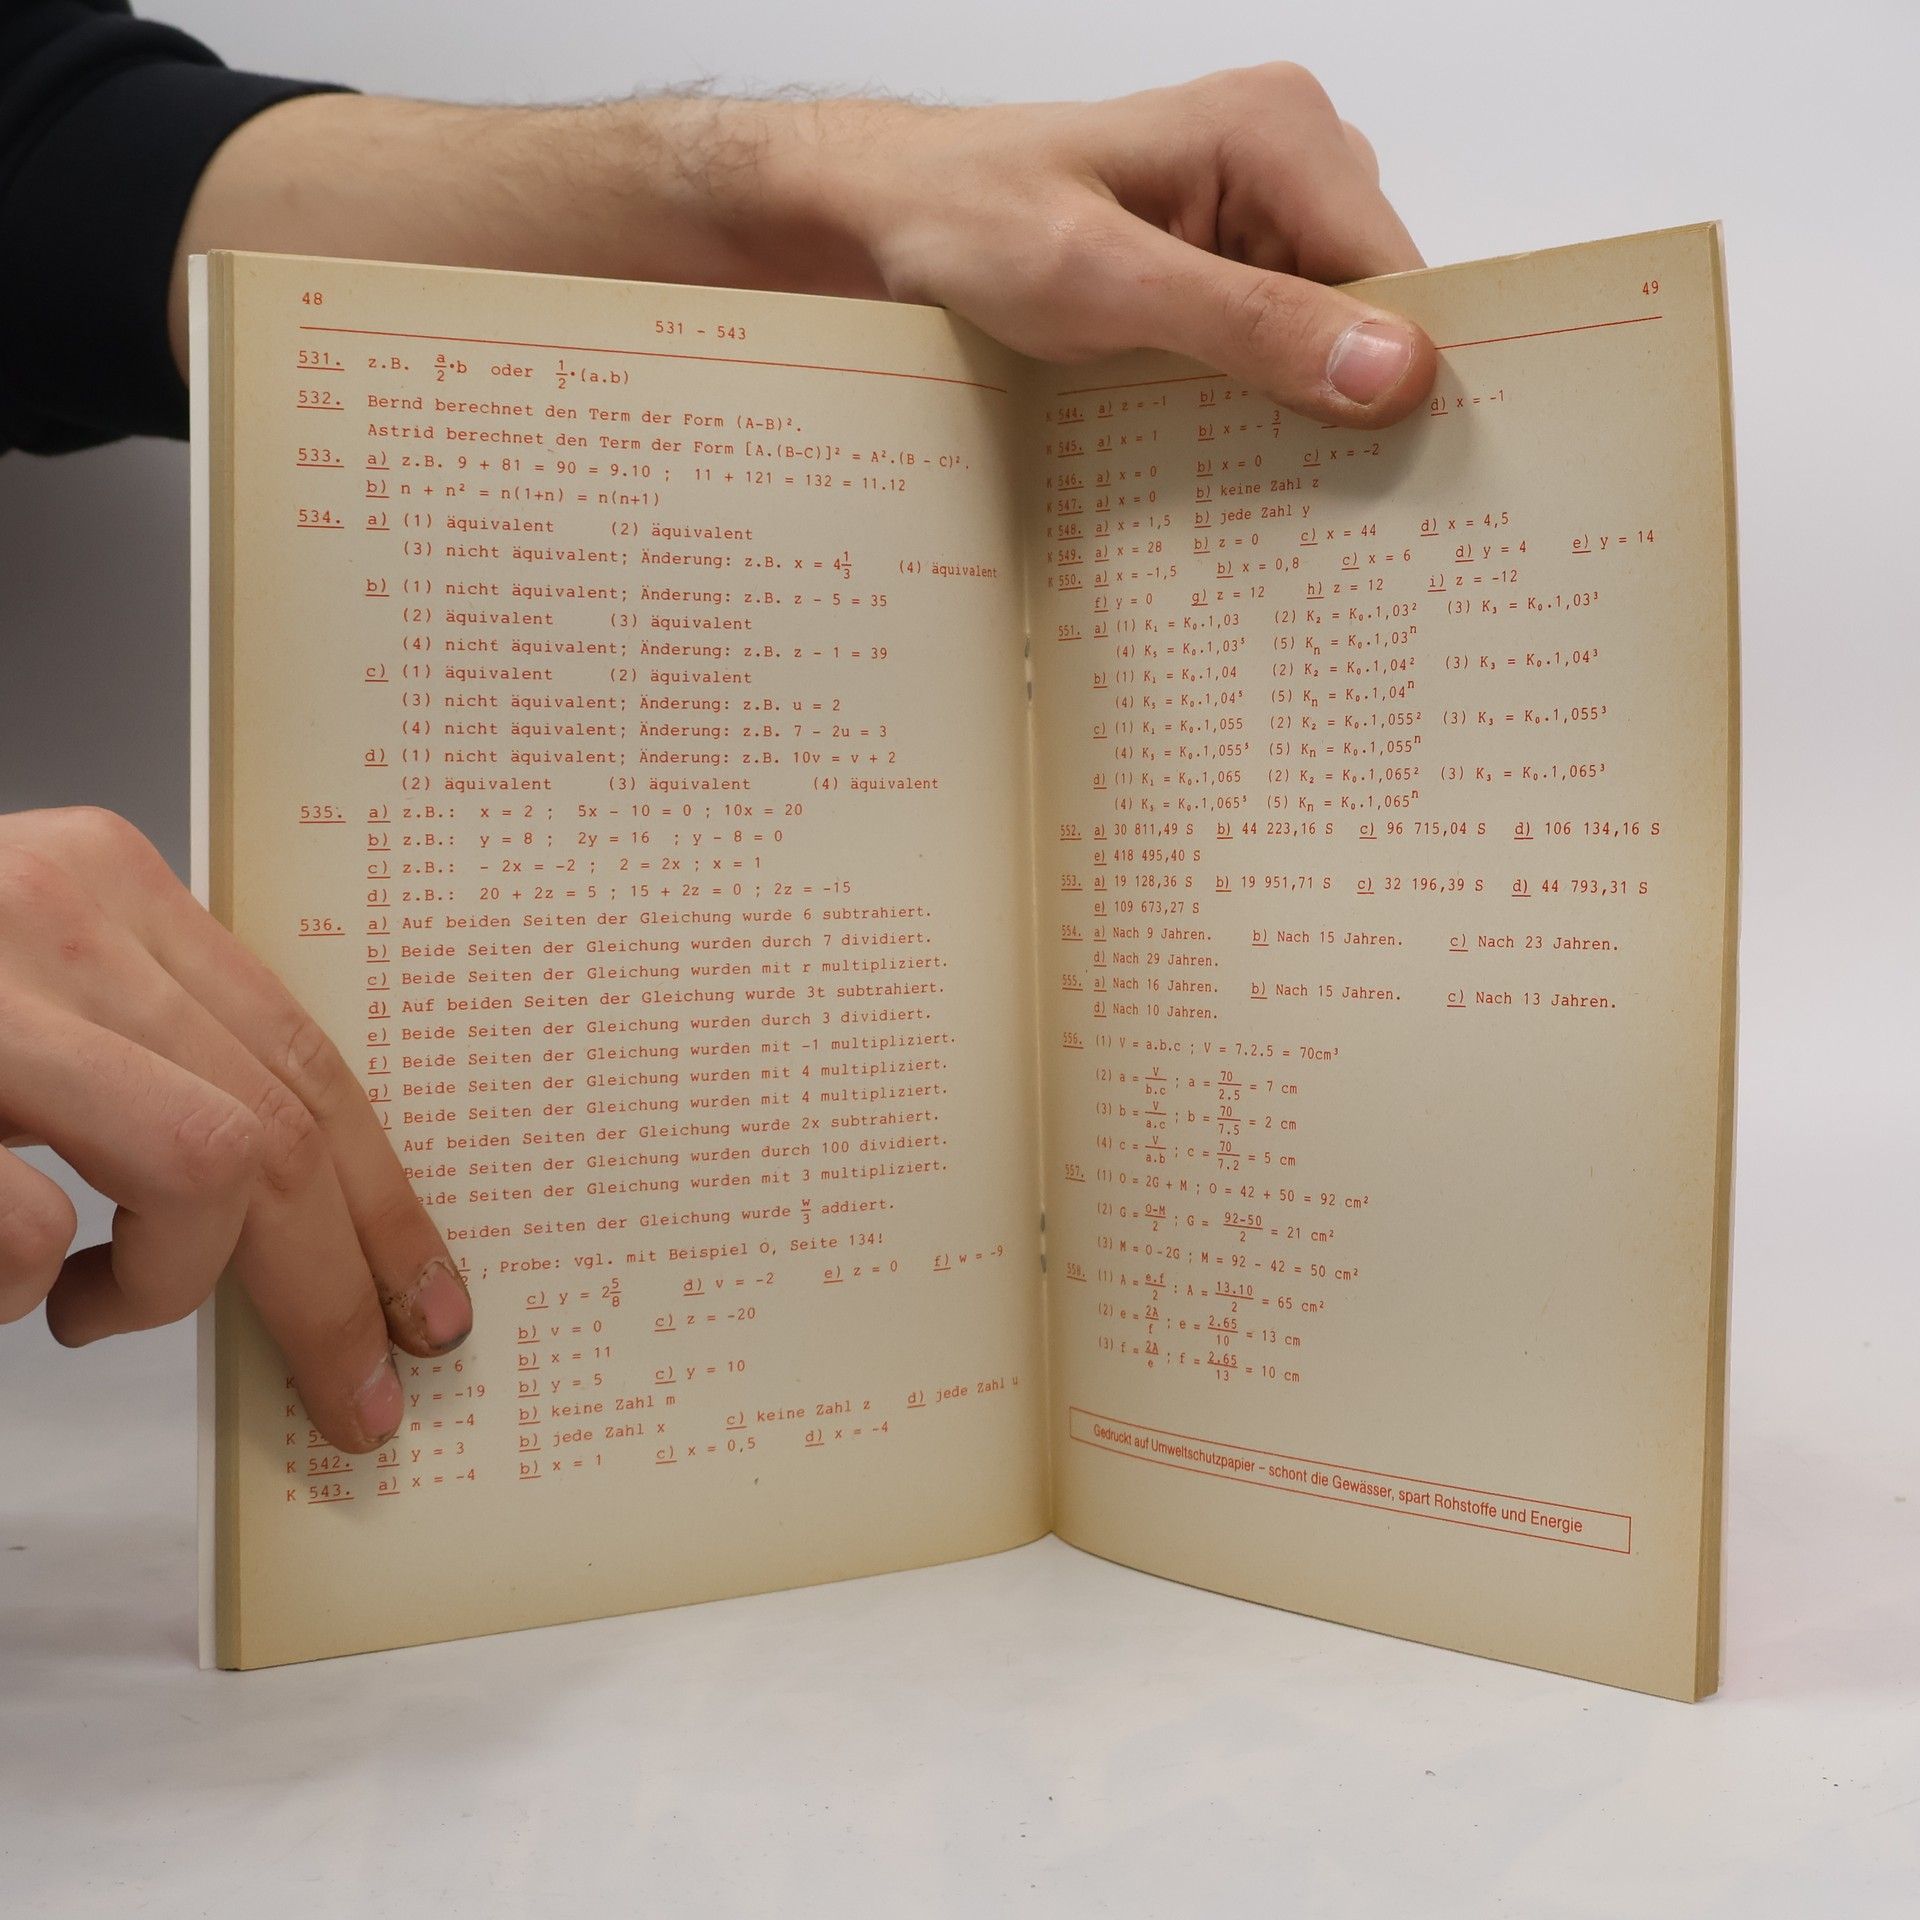 48
531 - 543
531. z.B. a/2·b oder 1/2·(a.b)
532. Bernd berechnet den Term der Form (A-B)².
Astrid berechnet den Term der Form [A.(B-C)]² = A².(B - C)².
533. a) z.B. 9 + 81 = 90 = 9.10 ; 11 + 121 = 132 = 11.12
b) n + n² = n(1+n) = n(n+1)
534. a) (1) äquivalent (2) äquivalent
(3) nicht äquivalent; Änderung: z.B. x = 4 1/3 (4) äquivalent
b) (1) nicht äquivalent; Änderung: z.B. z - 5 = 35
(2) äquivalent (3) äquivalent
(4) nicht äquivalent; Änderung: z.B. z - 1 = 39
c) (1) äquivalent (2) äquivalent
(3) nicht äquivalent; Änderung: z.B. u = 2
(4) nicht äquivalent; Änderung: z.B. 7 - 2u = 3
d) (1) nicht äquivalent; Änderung: z.B. 10v = v + 2
(2) äquivalent (3) äquivalent (4) äquivalent
535. a) z.B.: x = 2 ; 5x - 10 = 0 ; 10x = 20
b) z.B.: y = 8 ; 2y = 16 ; y - 8 = 0
c) z.B.: - 2x = -2 ; 2 = 2x ; x = 1
d) z.B.: 20 + 2z = 5 ; 15 + 2z = 0 ; 2z = -15
536. a) Auf beiden Seiten der Gleichung wurde 6 subtrahiert.
b) Beide Seiten der Gleichung wurden durch 7 dividiert.
c) Beide Seiten der Gleichung wurden mit r multipliziert.
d) Auf beiden Seiten der Gleichung wurde 3t subtrahiert.
e) Beide Seiten der Gleichung wurden durch 3 dividiert.
f) Beide Seiten der Gleichung wurden mit -1 multipliziert.
g) Beide Seiten der Gleichung wurden mit 4 multipliziert.
) Beide Seiten der Gleichung wurden mit 4 multipliziert.
Auf beiden Seiten der Gleichung wurde 2x subtrahiert.
Beide Seiten der Gleichung wurden durch 100 dividiert.
eide Seiten der Gleichung wurden mit 3 multipliziert.
beiden Seiten der Gleichung wurde w/3 addiert.
1/2 ; Probe: Vgl. mit Beispiel O, Seite 134!
c) y = 2 5/8 d) v = -2 e) z = 0 f) w = -9
b) v = 0 c) z = -20
x = 6 b) x = 11
K y = -19 b) y = 5 c) y = 10
K m = -4 b) keine Zahl m
K 5 a) y = 3 b) jede Zahl x c) keine Zahl z d) jede Zahl u
K 542. a) x = -4 b) x = 1 c) x = 0,5 d) x = -4
K 543.
49
K 544. a) z = -1 b) z = d) x = -1
K 545. a) x = 1 b) x = - 3/7
K 546. a) x = 0 b) x = 0 c) x = -2
K 547. a) x = 0 b) keine Zahl z
K 548. a) x = 1,5 b) jede Zahl y
K 549. a) x = 28 b) z = 0 c) x = 44 d) x = 4,5
K 550. a) x = -1,5 b) x = 0,8 c) x = 6 d) y = 4 e) y = 14
f) y = 0 g) z = 12 h) z = 12 i) z = -12
551. a) (1) K₁ = K₀.1,03 (2) K₂ = K₀.1,03² (3) K₃ = K₀.1,03³
(4) K₅ = K₀.1,03⁵ (5) Kₙ = K₀.1,03ⁿ
b) (1) K₁ = K₀.1,04 (2) K₂ = K₀.1,04² (3) K₃ = K₀.1,04³
(4) K₅ = K₀.1,04⁵ (5) Kₙ = K₀.1,04ⁿ
c) (1) K₁ = K₀.1,055 (2) K₂ = K₀.1,055² (3) K₃ = K₀.1,055³
(4) K₅ = K₀.1,055⁵ (5) Kₙ = K₀.1,055ⁿ
d) (1) K₁ = K₀.1,065 (2) K₂ = K₀.1,065² (3) K₃ = K₀.1,065³
(4) K₅ = K₀.1,065⁵ (5) Kₙ = K₀.1,065ⁿ
552. a) 30 811,49 S b) 44 223,16 S c) 96 715,04 S d) 106 134,16 S
e) 418 495,40 S
553. a) 19 128,36 S b) 19 951,71 S c) 32 196,39 S d) 44 793,31 S
e) 109 673,27 S
554. a) Nach 9 Jahren. b) Nach 15 Jahren. c) Nach 23 Jahren.
d) Nach 29 Jahren.
555. a) Nach 16 Jahren. b) Nach 15 Jahren. c) Nach 13 Jahren.
d) Nach 10 Jahren.
556. (1) V = a.b.c ; V = 7.2.5 = 70cm³
(2) a = V/b.c ; a = 70/2.5 = 7 cm
(3) b = V/a.c ; b = 70/7.5 = 2 cm
(4) c = V/a.b ; c = 70/7.2 = 5 cm
557. (1) O = 2G + M ; O = 42 + 50 = 92 cm²
(2) G = O-M/2 ; G = 92-50/2 = 21 cm²
(3) M = O-2G ; M = 92 - 42 = 50 cm²
558. (1) A = e.f/2 : A = 13.10/2 = 65 cm²
(2) e = 2A/f ; e = 2.65/10 = 13 cm
(3) f = 2A/e ; f = 2.65/13 = 10 cm
Gedruckt auf Umweltschutzpapier – schont die Gewässer, spart Rohstoffe und Energie